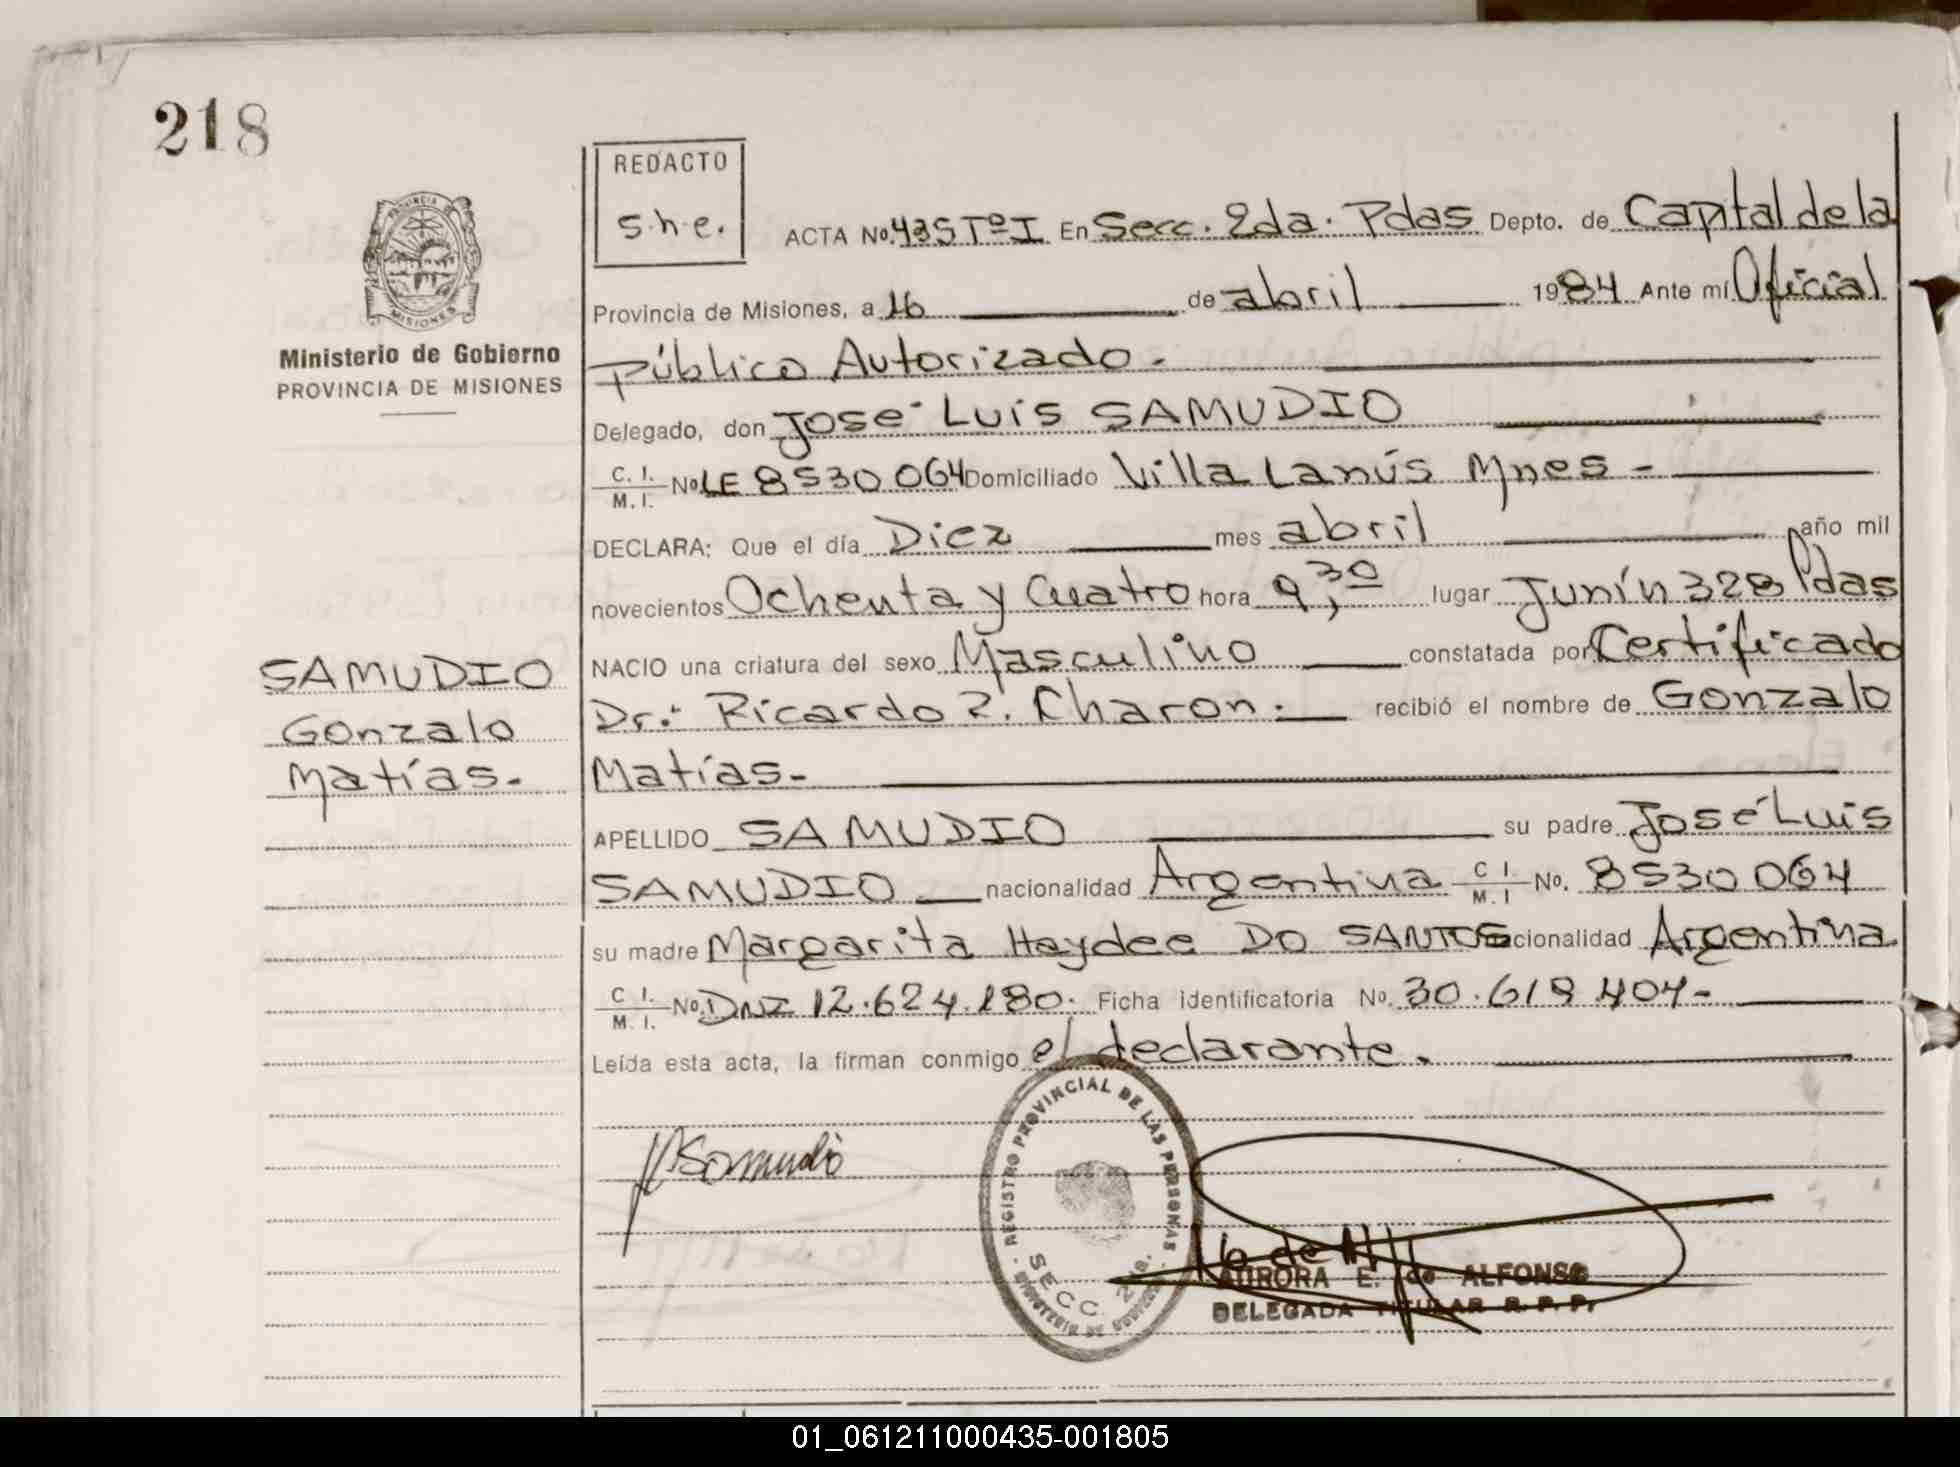 218
REDACTO
s.h.e.
ACTA No. 435 Tº I En Secc. 2da. Pdas Depto. de Capital de la
Provincia de Misiones, a 16 de abril 1984 Ante mí Oficial
Público Autorizado.
Delegado, don José Luis SAMUDIO
C. I. / M. I. No. LE 8530064 Domiciliado Villa Lanús Mnes -
DECLARA: Que el día Diez mes abril año mil
novecientos Ochenta y Cuatro hora 9,30 lugar Junín 328 Pdas
NACIO una criatura del sexo Masculino constatada por Certificado
Dr.: Ricardo R. Charon. recibió el nombre de Gonzalo
Matías-
APELLIDO SAMUDIO su padre José Luis
SAMUDIO nacionalidad Argentina C I. / M. I No. 8530064
su madre Margarita Haydee DO SANTOS nacionalidad Argentina
C I. / M. I. No. DNI 12.624.180. Ficha identificatoria No. 30.618.404-
Leída esta acta, la firman conmigo el declarante.
PROVINCIA DE
MISIONES
Ministerio de Gobierno
PROVINCIA DE MISIONES
SAMUDIO
Gonzalo
Matías-
Samudio
REGISTRO PROVINCIAL DE LAS PERSONAS
SECC. 2da.
MINISTERIO DE GOBIERNO
AURORA E. de ALFONSO
DELEGADA TITULAR R. P. P.
01_061211000435-001805